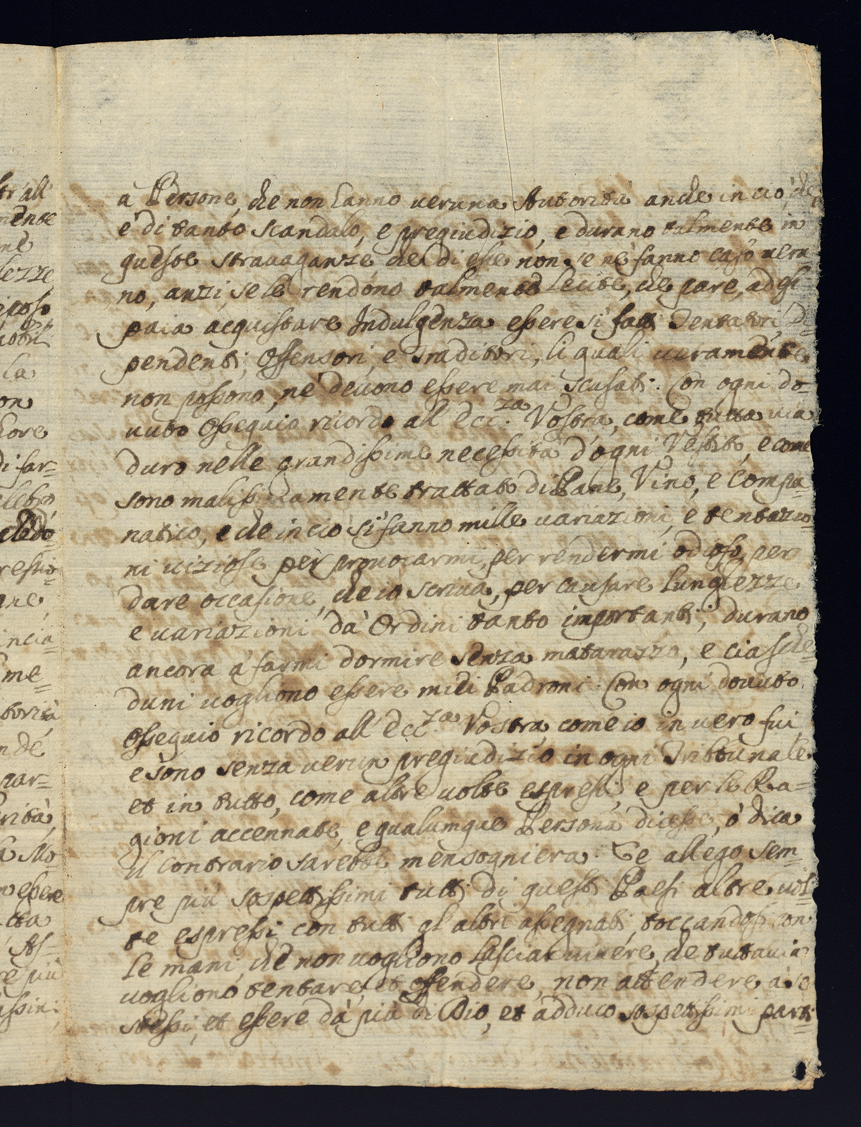 a Persone, che non hanno veruna Autorità anche in ciò che
è di tanto scandalo, e pregiudizio, e durano talmente in
queste stravaganze che di esse non se ne fanno caso veru
no, anzi, se le rendono talmente lecite, che pare, ad essi
paia acquistare Indulgenza essere si fatti Tentatori, Di=
pendenti, Offensori, e Traditori, li quali veramente
non possono, ne devono essere mai scusati. Con ogni do=
vuto Ossequio ricordo all'Ecc.za Vostra, come tutta via
duro nelle grandissime necessità d'ogni Vestito, e come
sono malissimamente trattato di Pane, Vino, e Compa=
natico, e che in ciò si fanno mille variazioni, e tentazio=
ni viziose per provocarmi, per rendermi odioso, per
dare occasione, che io scriva, per causare lunghezze
e variazioni da Ordini tanto importanti; durano
ancora a farmi dormire senza matarazzo, e ciasche=
duni vogliono essere miei Padroni. Con ogni dovuto
Ossequio ricordo all'Ecc.za Vostra come io in vero fui
e sono senza verun pregiudizio in ogni Tribunale
et in tutto, come altre volte espressi, e per le Ra=
gioni accennate, e qualunque Persona dicesse, ò dica
il contrario sarebbe mensogniera. Te allego sem=
pre più sospettissimi tutti di questi Paesi altre vol=
te espressi con tutti gl'altri assegnati toccandosi con
le mani, che non vogliono lasciar vivere, che tuttavia
vogliono tentare, et offendere, non attendere a se
stessi, et essere da più di Dio, et adduco sospettissimi parti=